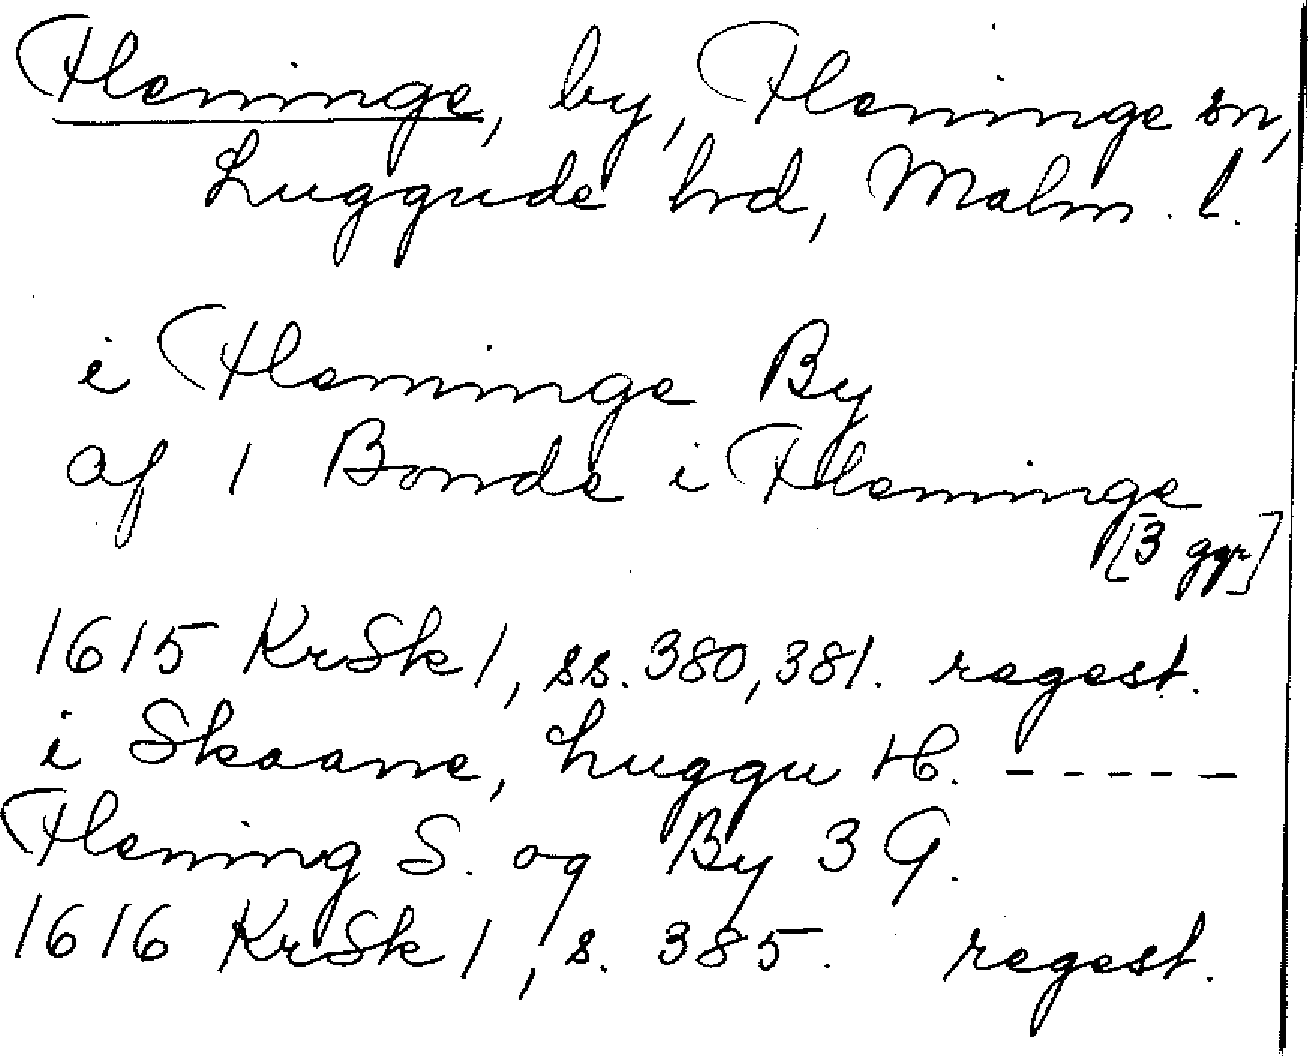 Fleninge, by, Fleninge sn,
Luggude hrd, Malm. l.
i Fleninge By
af 1 Bonde i Fleninge
[3 ggr]
1615 KrSk 1, ss. 380, 381. regest.
i Skaane, Luggu H. - - - - -
Flening S. og By 3 G.
1616 KrSk 1, s. 385. regest.